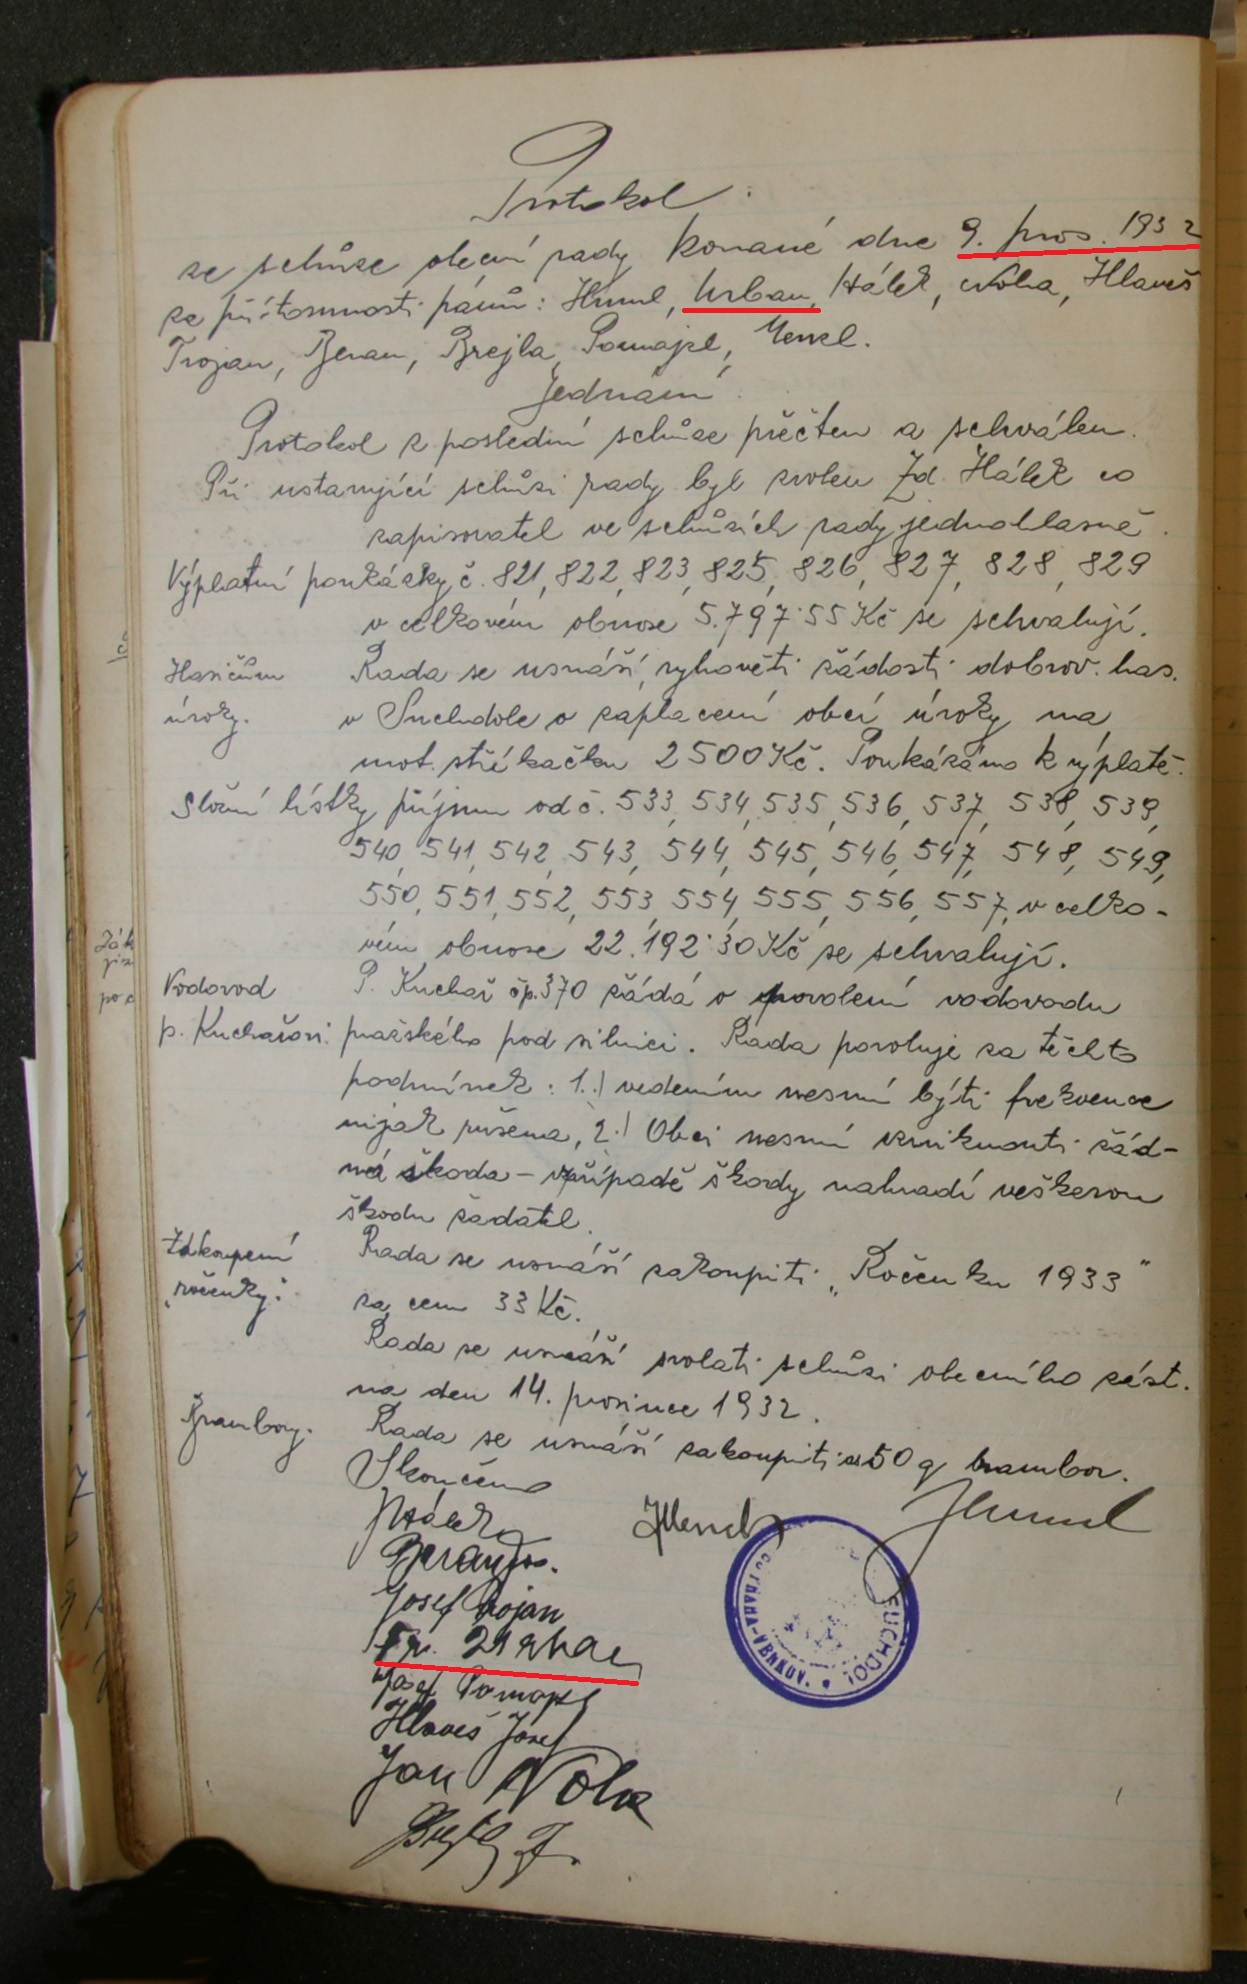 Protokol
ze schůze obecní rady konané dne 9. pros. 1932
za přítomnosti pánů: Huml, Urban, Hálek, Nola, Hlaveš
Trojan, Beran, Brejla, Pomajzl, Henzl.
Jednání
Protokol z poslední schůze přečten a schválen.
Při ustavující schůzi rady byl zvolen Zd. Hálek co
zapisovatel ve schůzích rady jednohlasně.
Výplatní poukázky č. 821, 822, 823, 825, 826, 827, 828, 829
v celkovém obnose 5.797·55 Kč se schvalují.
Hasičům Rada se usnáší, vyhověti žádosti dobrov. has.
úroky. v Suchdole o zaplacení obcí úroky na
mot. stříkačku 2500 Kč. Poukázáno k výplatě.
Složní lístky příjmu od č. 533, 534, 535, 536, 537, 538, 539,
540, 541, 542, 543, 544, 545, 546, 547, 548, 549,
550, 551, 552, 553, 554, 555, 556, 557, v celko-
vém obnose 22.192·30 Kč se schvalují.
Vodovod P. Kuchař čp. 370 žádá o povolení vodovodu
p. Kuchařovi. pražského pod silnici. Rada povoluje za těchto
podmínek: 1.) vedením nesmí býti frekvence
nijak rušena, 2.) Obci nesmí vzniknouti žád-
ná škoda – v případě škody nahradí veškerou
škodu žadatel.
Zakoupení Rada se usnáší zakoupiti „Ročenku 1933"
„ročenky." za cenu 33 Kč.
Rada se usnáší svolati schůzi obecního zást.
na den 14. prosince 1932.
Brambory. Rada se usnáší zakoupiti 50 q brambor.
Skončeno
Hálek
Huml
Beran Jos.
Josef Trojan
Fr. Urban
Josef Pomajzl
Hlaveš Josef
Jan Nola
SUCHDOL
PRAHA-VENKOV.